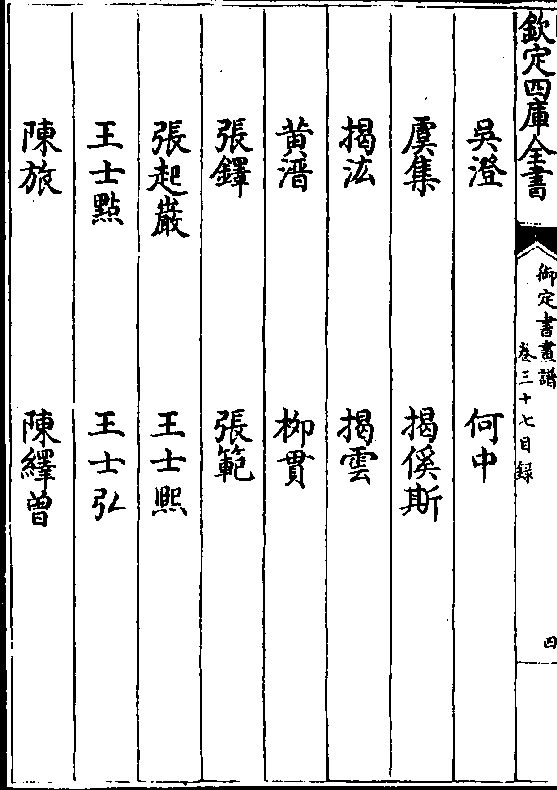 欽定四庫全書
御定書畫譜
卷三十七目録
四
吳澄　何中
虞集　揭傒斯
揭汯　揭雲
黄溍　柳貫
張鐸　張範
張起巖　王士熙
王士點　王士弘
陳旅　陳繹曾